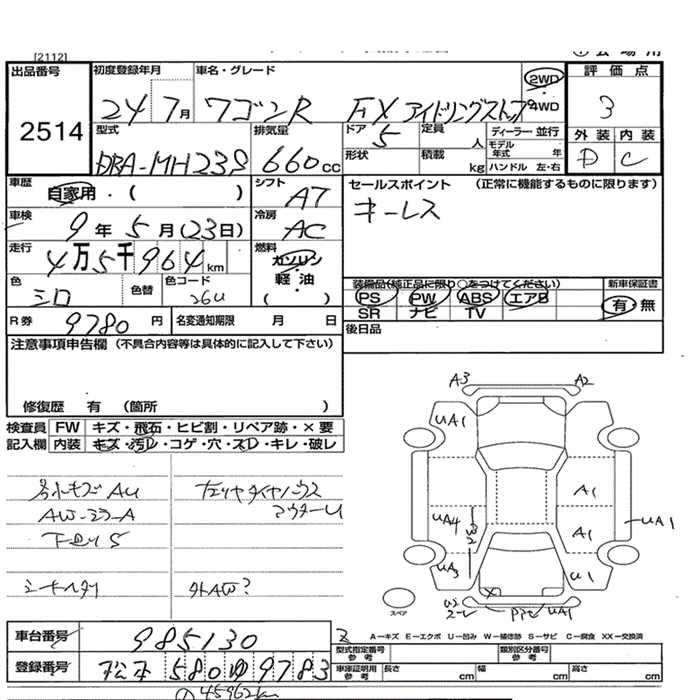 [2112]
出品番号
2514
初度登録年月
24 7月
車名・グレード
ワゴンR FX アイドリングストップ
2WD
4WD
評価点
3
外装 内装
D C
型式
DBA-MH23S
排気量
660cc
ドア
5
定員
人
ディーラー・並行
モデル
年式 年
形状
積載
kg
ハンドル 左・右
車歴
自家用・( )
シフト
A7
セールスポイント (正常に機能するものに限ります)
キーレス
車検
9年 5月 (23日)
冷房
AC
走行
4万5千964km
燃料
ガソリン
軽・油
( )
色
シロ
色替
色コード
26U
装備品(純正品に限り○をつけてください)
PS PW ABS エアB
SR ナビ TV
新車保証書
有・無
R券
9780円
名変通知期限 月 日
後日品
注意事項申告欄 (不具合内容等は具体的に記入して下さい)
修復歴 有 (箇所 )
検査員
記入欄
FW キズ・飛石・ヒビ割・リペア跡・×要
内装 キズ・汚レ・コゲ・穴・スレ・キレ・破レ
AW
左リヤタイヤハウス
下回りS
外AW?
A3
A2
UA1
A1
UA4
A1
UA1
UA3
U1
X
UA1
スペア
A−キズ E−エクボ U−凹み W−補修跡 S−サビ C−腐食 XX−交換済
車台番号
985130
型式指定番号
参考
類別区分番号
参考
登録番号
松本 580 ゆ 9783
車庫証明用
参考
長さ cm
幅 cm
高さ cm